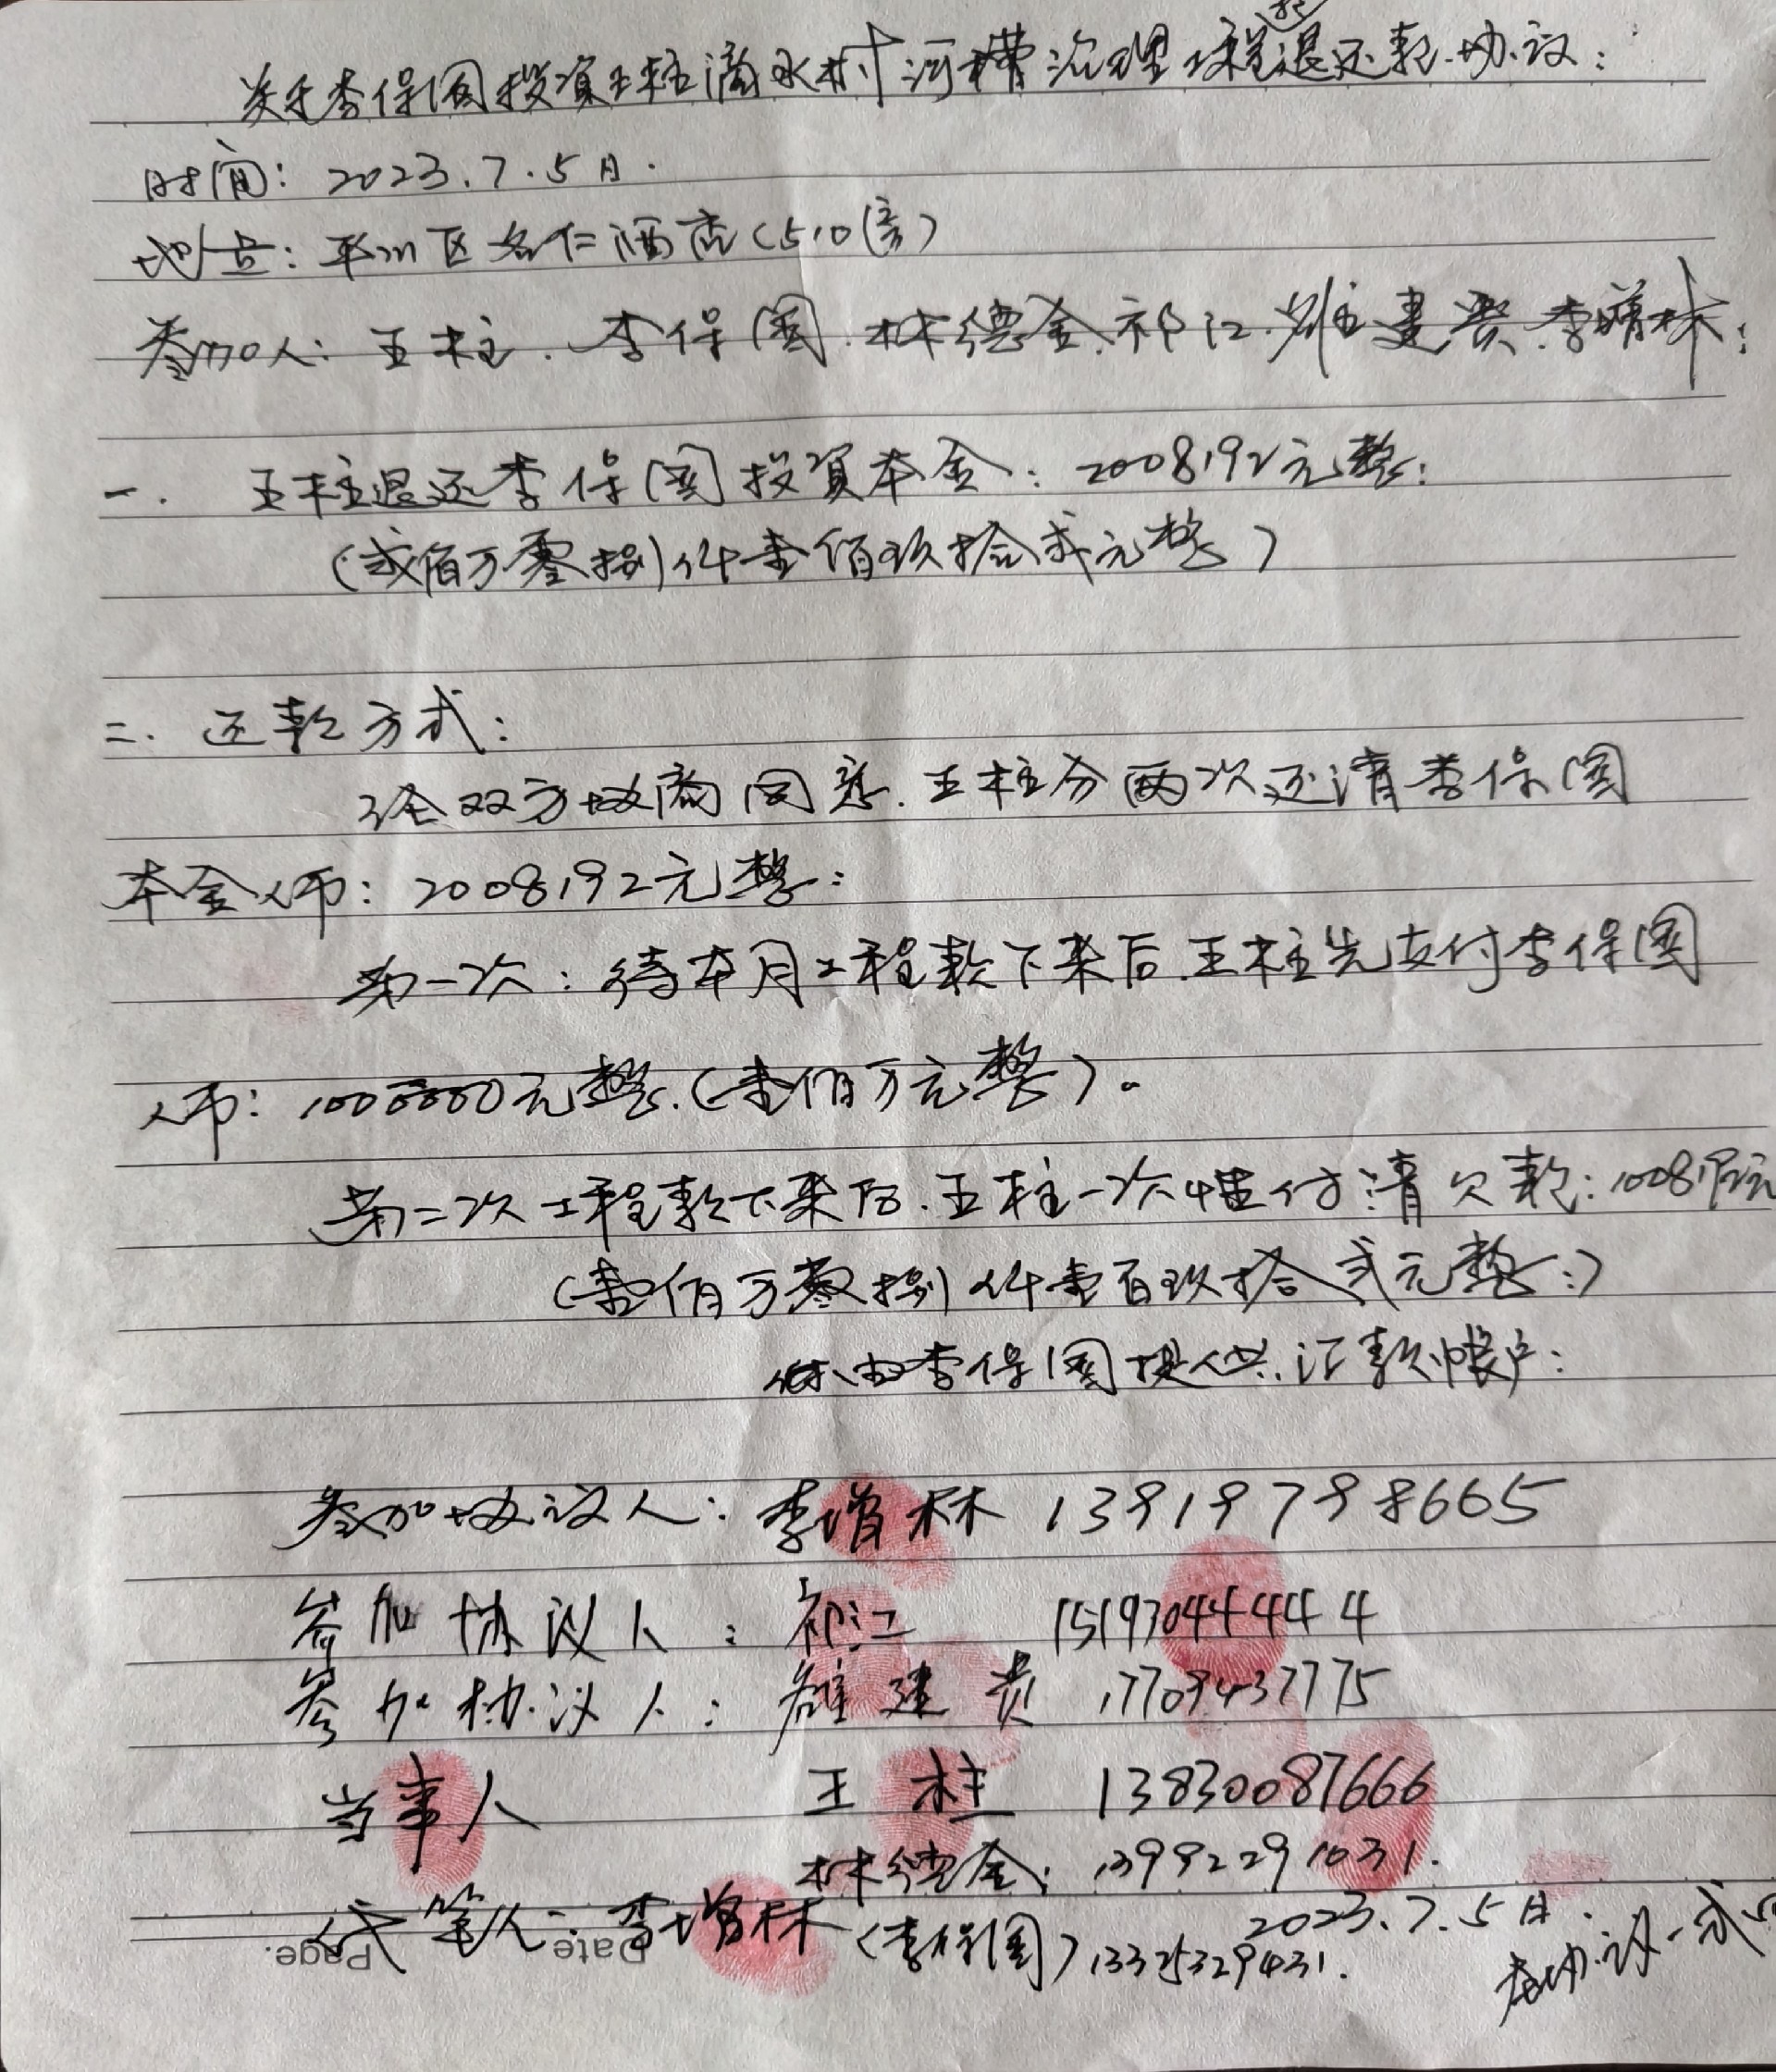 关于李保国投资王柱滴水村河槽治理工程退还款协议:
时间: 2023.7.5日.
地点: 平川区名仁酒店(510房)
参加人: 王柱. 李保国. 林德金. 祁江. 雒建贵. 李增林;
一. 王柱退还李保国投资本金: 2008192元整;
(贰佰万零捌仟壹佰玖拾贰元整)
二. 还款方式:
经双方协商同意. 王柱分两次还清李保国
本金人币: 2008192元整:
第一次: 待本月工程款下来后. 王柱先支付李保国
人币: 1000000元整. (壹佰万元整)。
第二次工程款下来后. 王柱一次性付清欠款: 1008192元
(壹佰万零捌仟壹百玖拾贰元整:)
由李保国提供. 汇款帐户:
参加协议人: 李增林 13919798665
参加协议人: 祁江 15193044444
参加协议人: 雒建贵 17709437775
当事人 王柱 13830087666
林德金: 13992291031.
代笔人: 李增林 (李保国) 13325329431.
2023.7.5日.
本协议一式
Page. Date